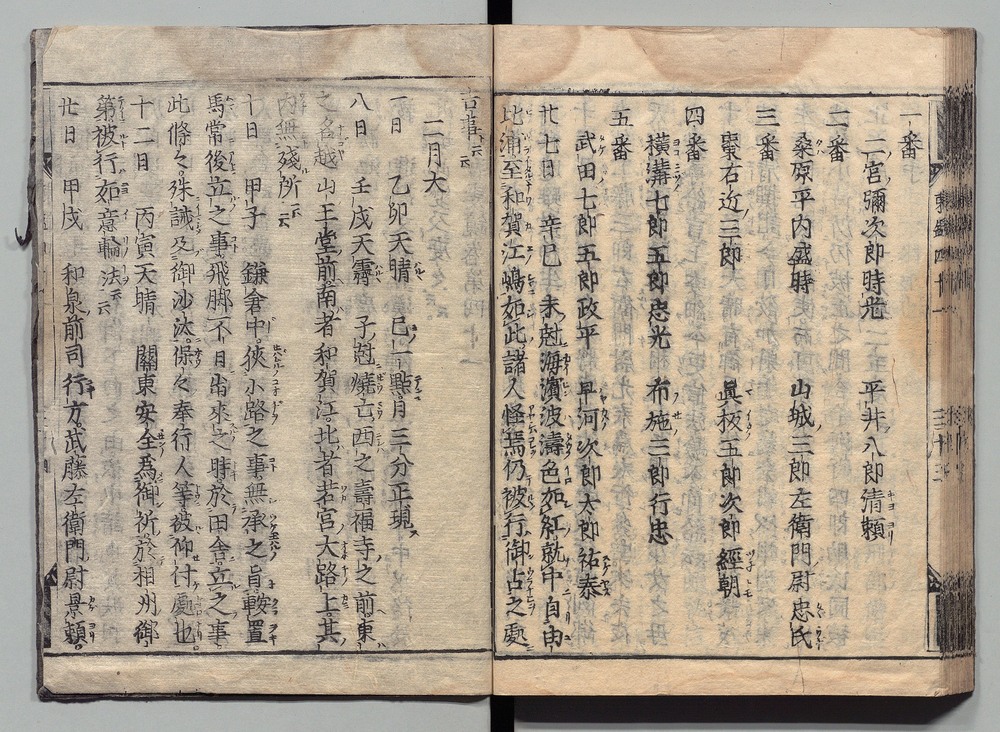 一番
二宮彌次郎時光　平井八郎清頼
二番
桑原平内盛時　山城三郎左衛門尉忠氏
三番
棗右近三郎　眞板五郎次郎經朝
四番
横溝七郎五郎忠光　布施三郎行忠
五番
武田七郎五郎政平　早河次郎太郎祐泰
廿七日　辛巳　未尅海濱波濤色如紅就中自由
比浦至和賀江嶋如此諸人怪焉仍被行御占之處
吉事云云
二月大
一日　乙卯天晴　巳一點月三分正現
八日　壬戌天霽　子尅燒亡西之壽福寺之前東
之名越山王堂前南者和賀江北者若宮大路上其
内無殘所云云
十日　甲子　鎌倉中狹小路之事無承之旨鞍置
馬常後立之事飛脚不日出來之時於田舍立之事
此條々殊誡及御沙汰保々奉行人等被仰付處也
十二日　丙寅天晴　關東安全爲御祈於相州御
第被行如意輪法云云
廿日　甲戌　和泉前司行方武藤左衛門尉景頼